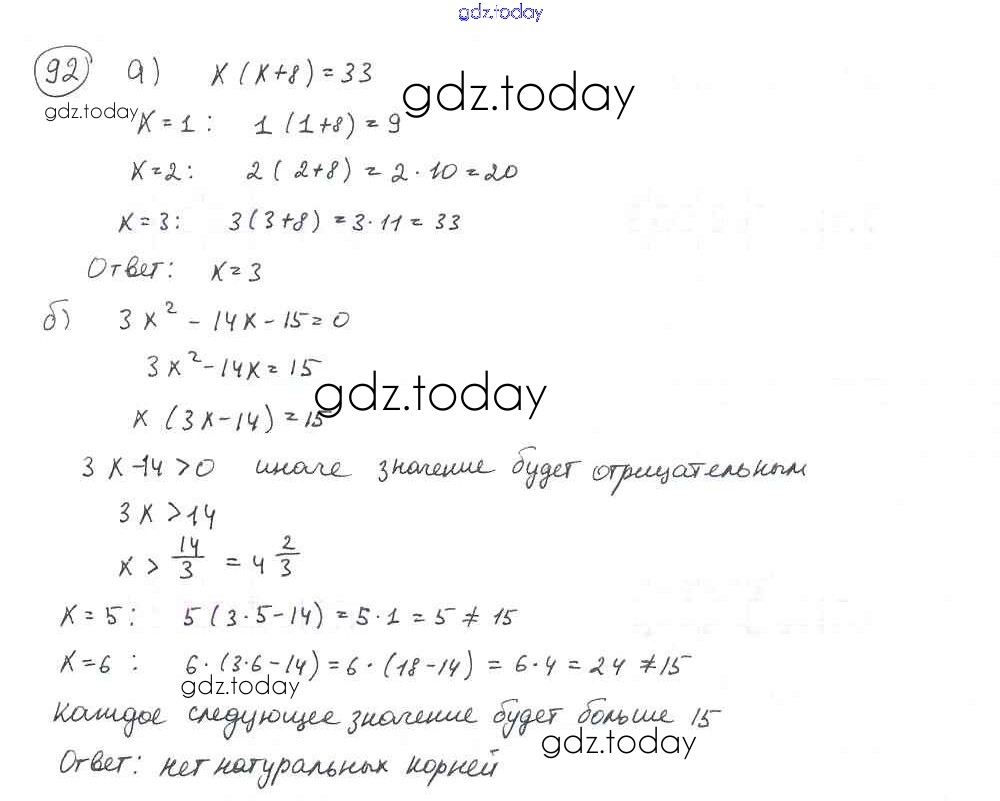 gdz.today
92 а) x(x+8)=33
gdz.today
gdz.today
x=1: 1(1+8)=9
x=2: 2(2+8)=2·10=20
x=3: 3(3+8)=3·11=33
Ответ: x=3
б) 3x²-14x-15=0
3x²-14x=15
gdz.today
x(3x-14)=15
3x-14>0 иначе значение будет отрицательным
3x>14
x > 14/3 = 4 2/3
x=5: 5(3·5-14)=5·1=5≠15
x=6: 6·(3·6-14)=6·(18-14)=6·4=24≠15
gdz.today
Каждое следующее значение будет больше 15
gdz.today
Ответ: нет натуральных корней